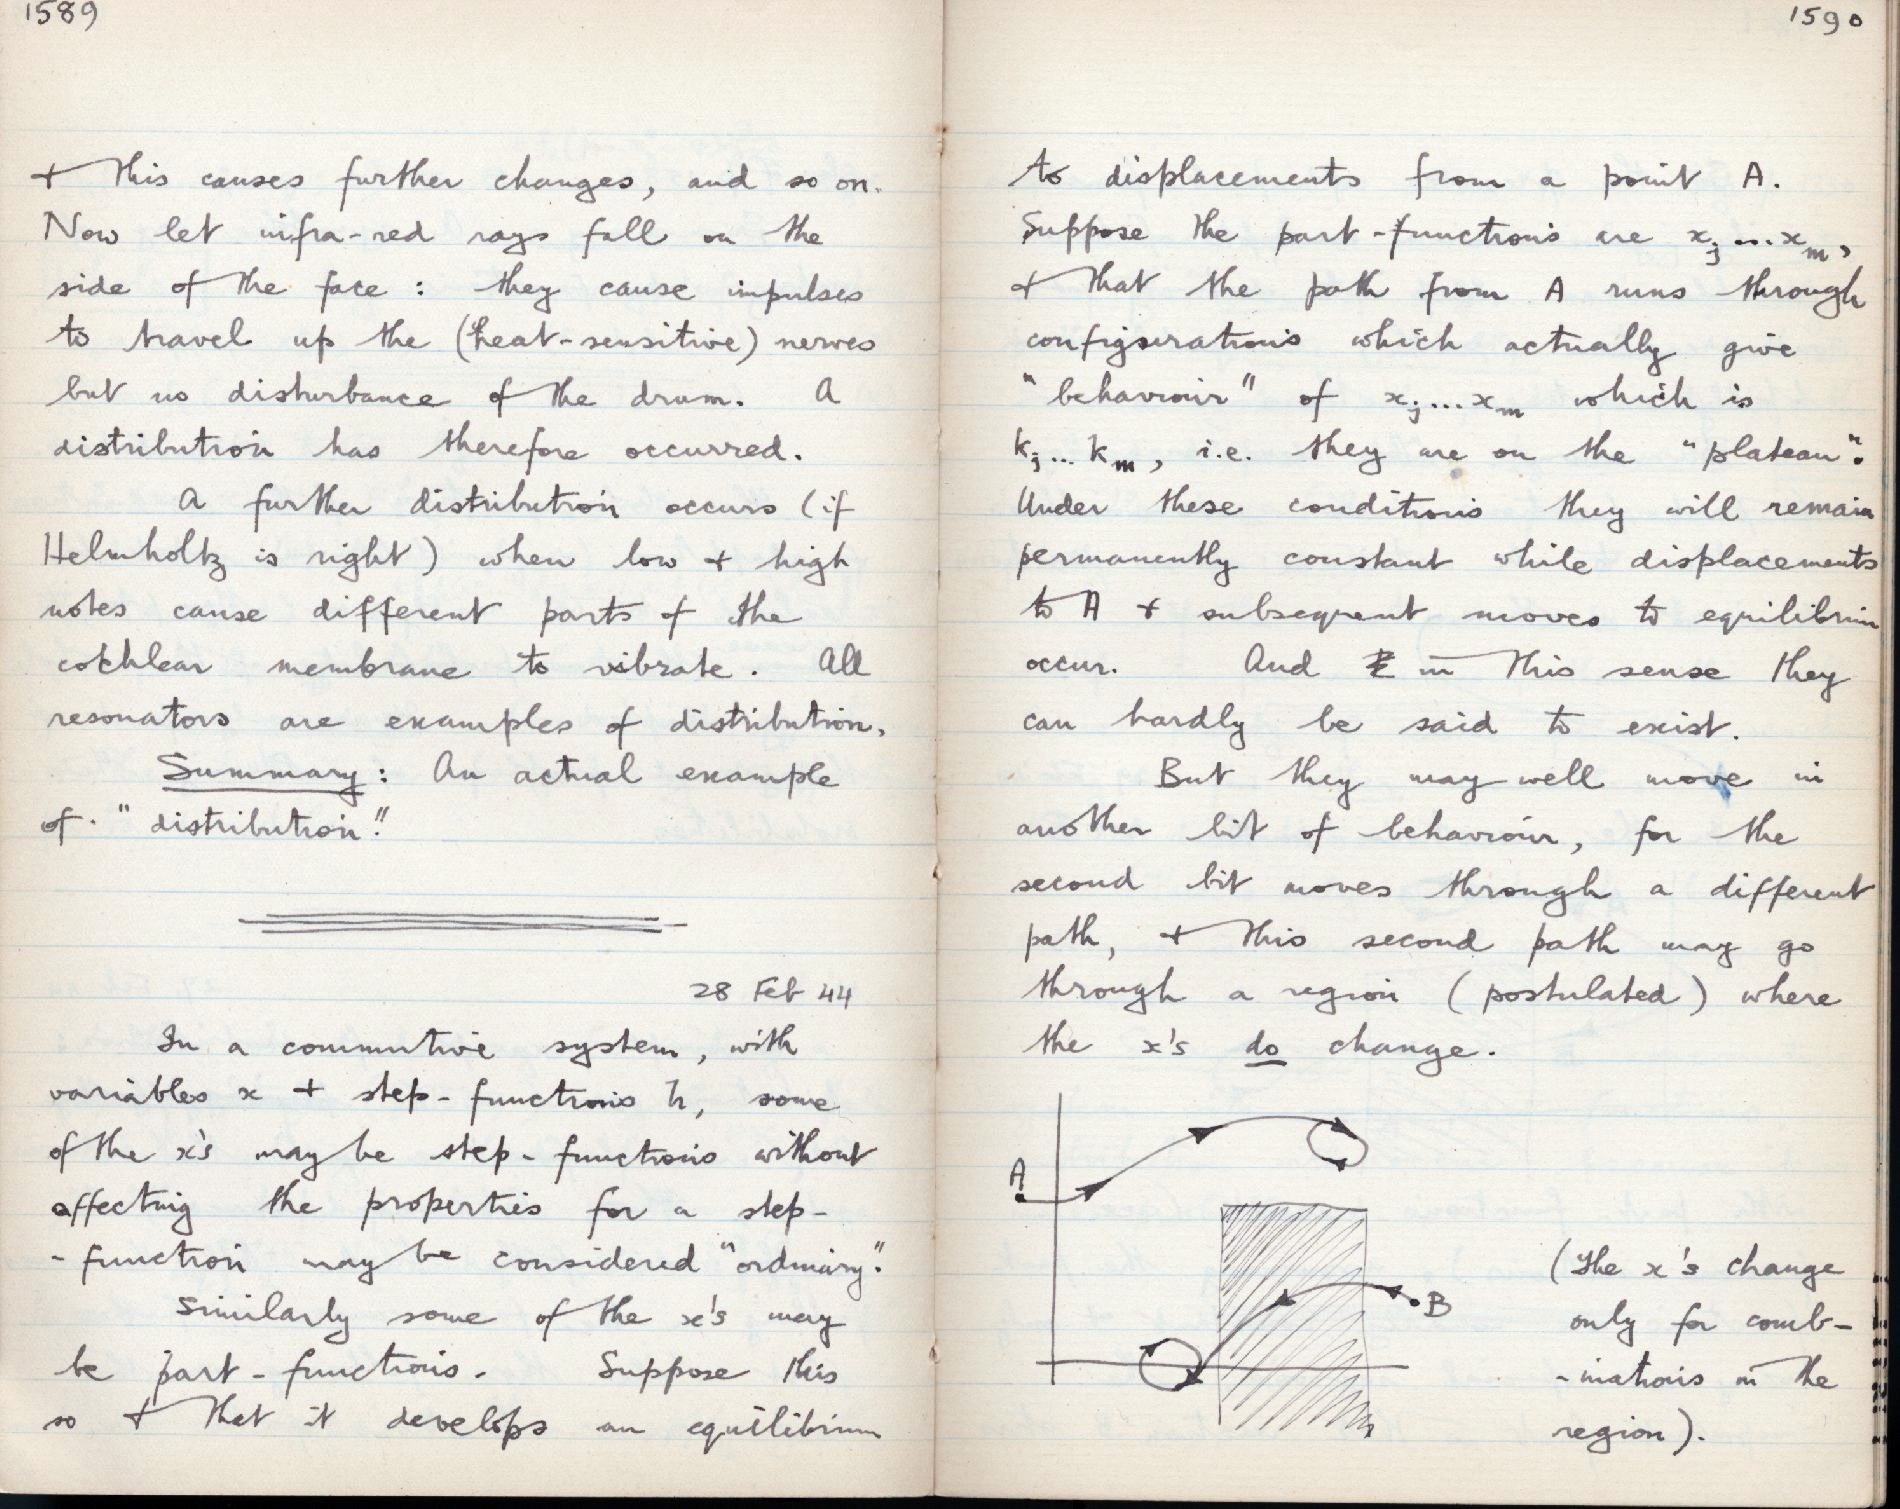 1589
+ this causes further changes, and so on.
Now let infra-red rays fall on the
side of the face : they cause impulses
to travel up the (heat-sensitive) nerves
but no disturbance of the drum. A
distribution has therefore occurred.
A further distribution occurs (if
Helmholtz is right) when low + high
notes cause different parts of the
cochlear membrane to vibrate. All
resonators are examples of distribution.
Summary : An actual example
of "distribution".
28 Feb 44
In a commutive system, with
variables x + step-functions h, some
of the x's may be step-functions without
affecting the properties for a step-
-function may be considered "ordinary".
Similarly some of the x's may
be part-functions. Suppose this
so + that it develops an equilibrium
1590
to displacements from a point A.
Suppose the part-functions are xj...xm,
+ that the path from A runs through
configurations which actually give
"behaviour" of xj...xm which is
kj...km, i.e. they are on the "plateau".
Under these conditions they will remain
permanently constant while displacements
to A + subsequent moves to equilibrium
occur. And in this sense they
can hardly be said to exist.
But they may well move in
another bit of behaviour, for the
second bit moves through a different
path, + this second path may go
through a region (postulated) where
the x's do change.
A
B
(The x's change
only for comb-
-inations in the
region).